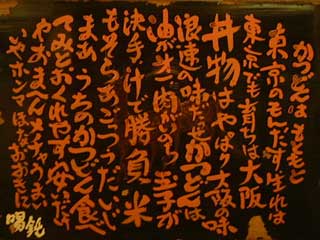 かつどんはもともと
東京のものだす生れは
東京でも育ちは大阪
丼物はやっぱり大阪の味
浪速の味だせかつどんは
油が生きい肉がいのち玉子が
決手けで勝負 米
もそらもうごっつうだいじ
まあうちのかつどん食べ
てみとおくれやす安おまっせ
やおまへんメチャうまい
いやホンマほなおおきに
喝鈍